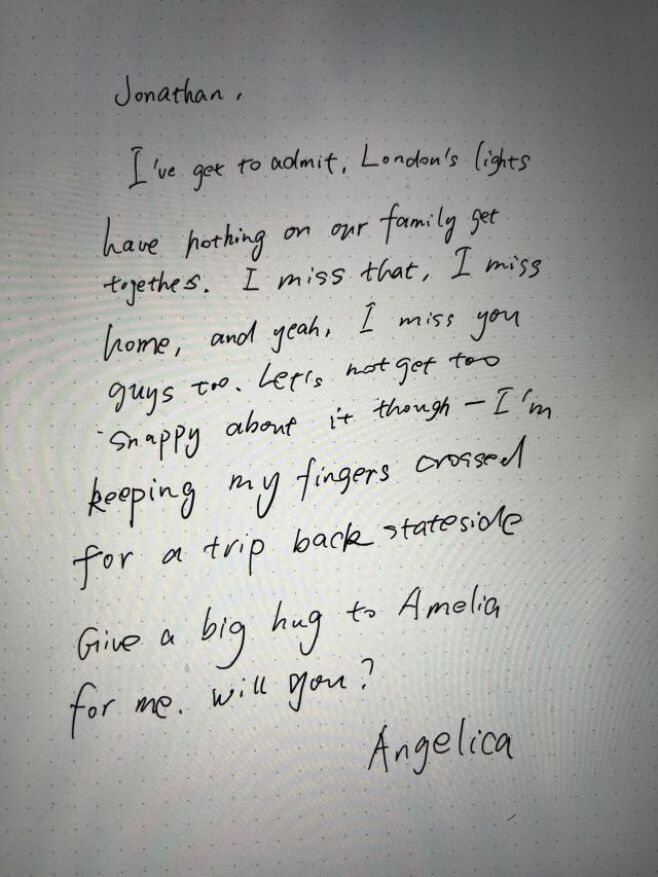 Jonathan,
I've get to admit, London's lights
have nothing on our family get
togethes. I miss that, I miss
home, and yeah, I miss you
guys too. Let's not get too
snappy about it though — I'm
keeping my fingers crossed
for a trip back stateside
Give a big hug to Amelia
for me. will you?
Angelica